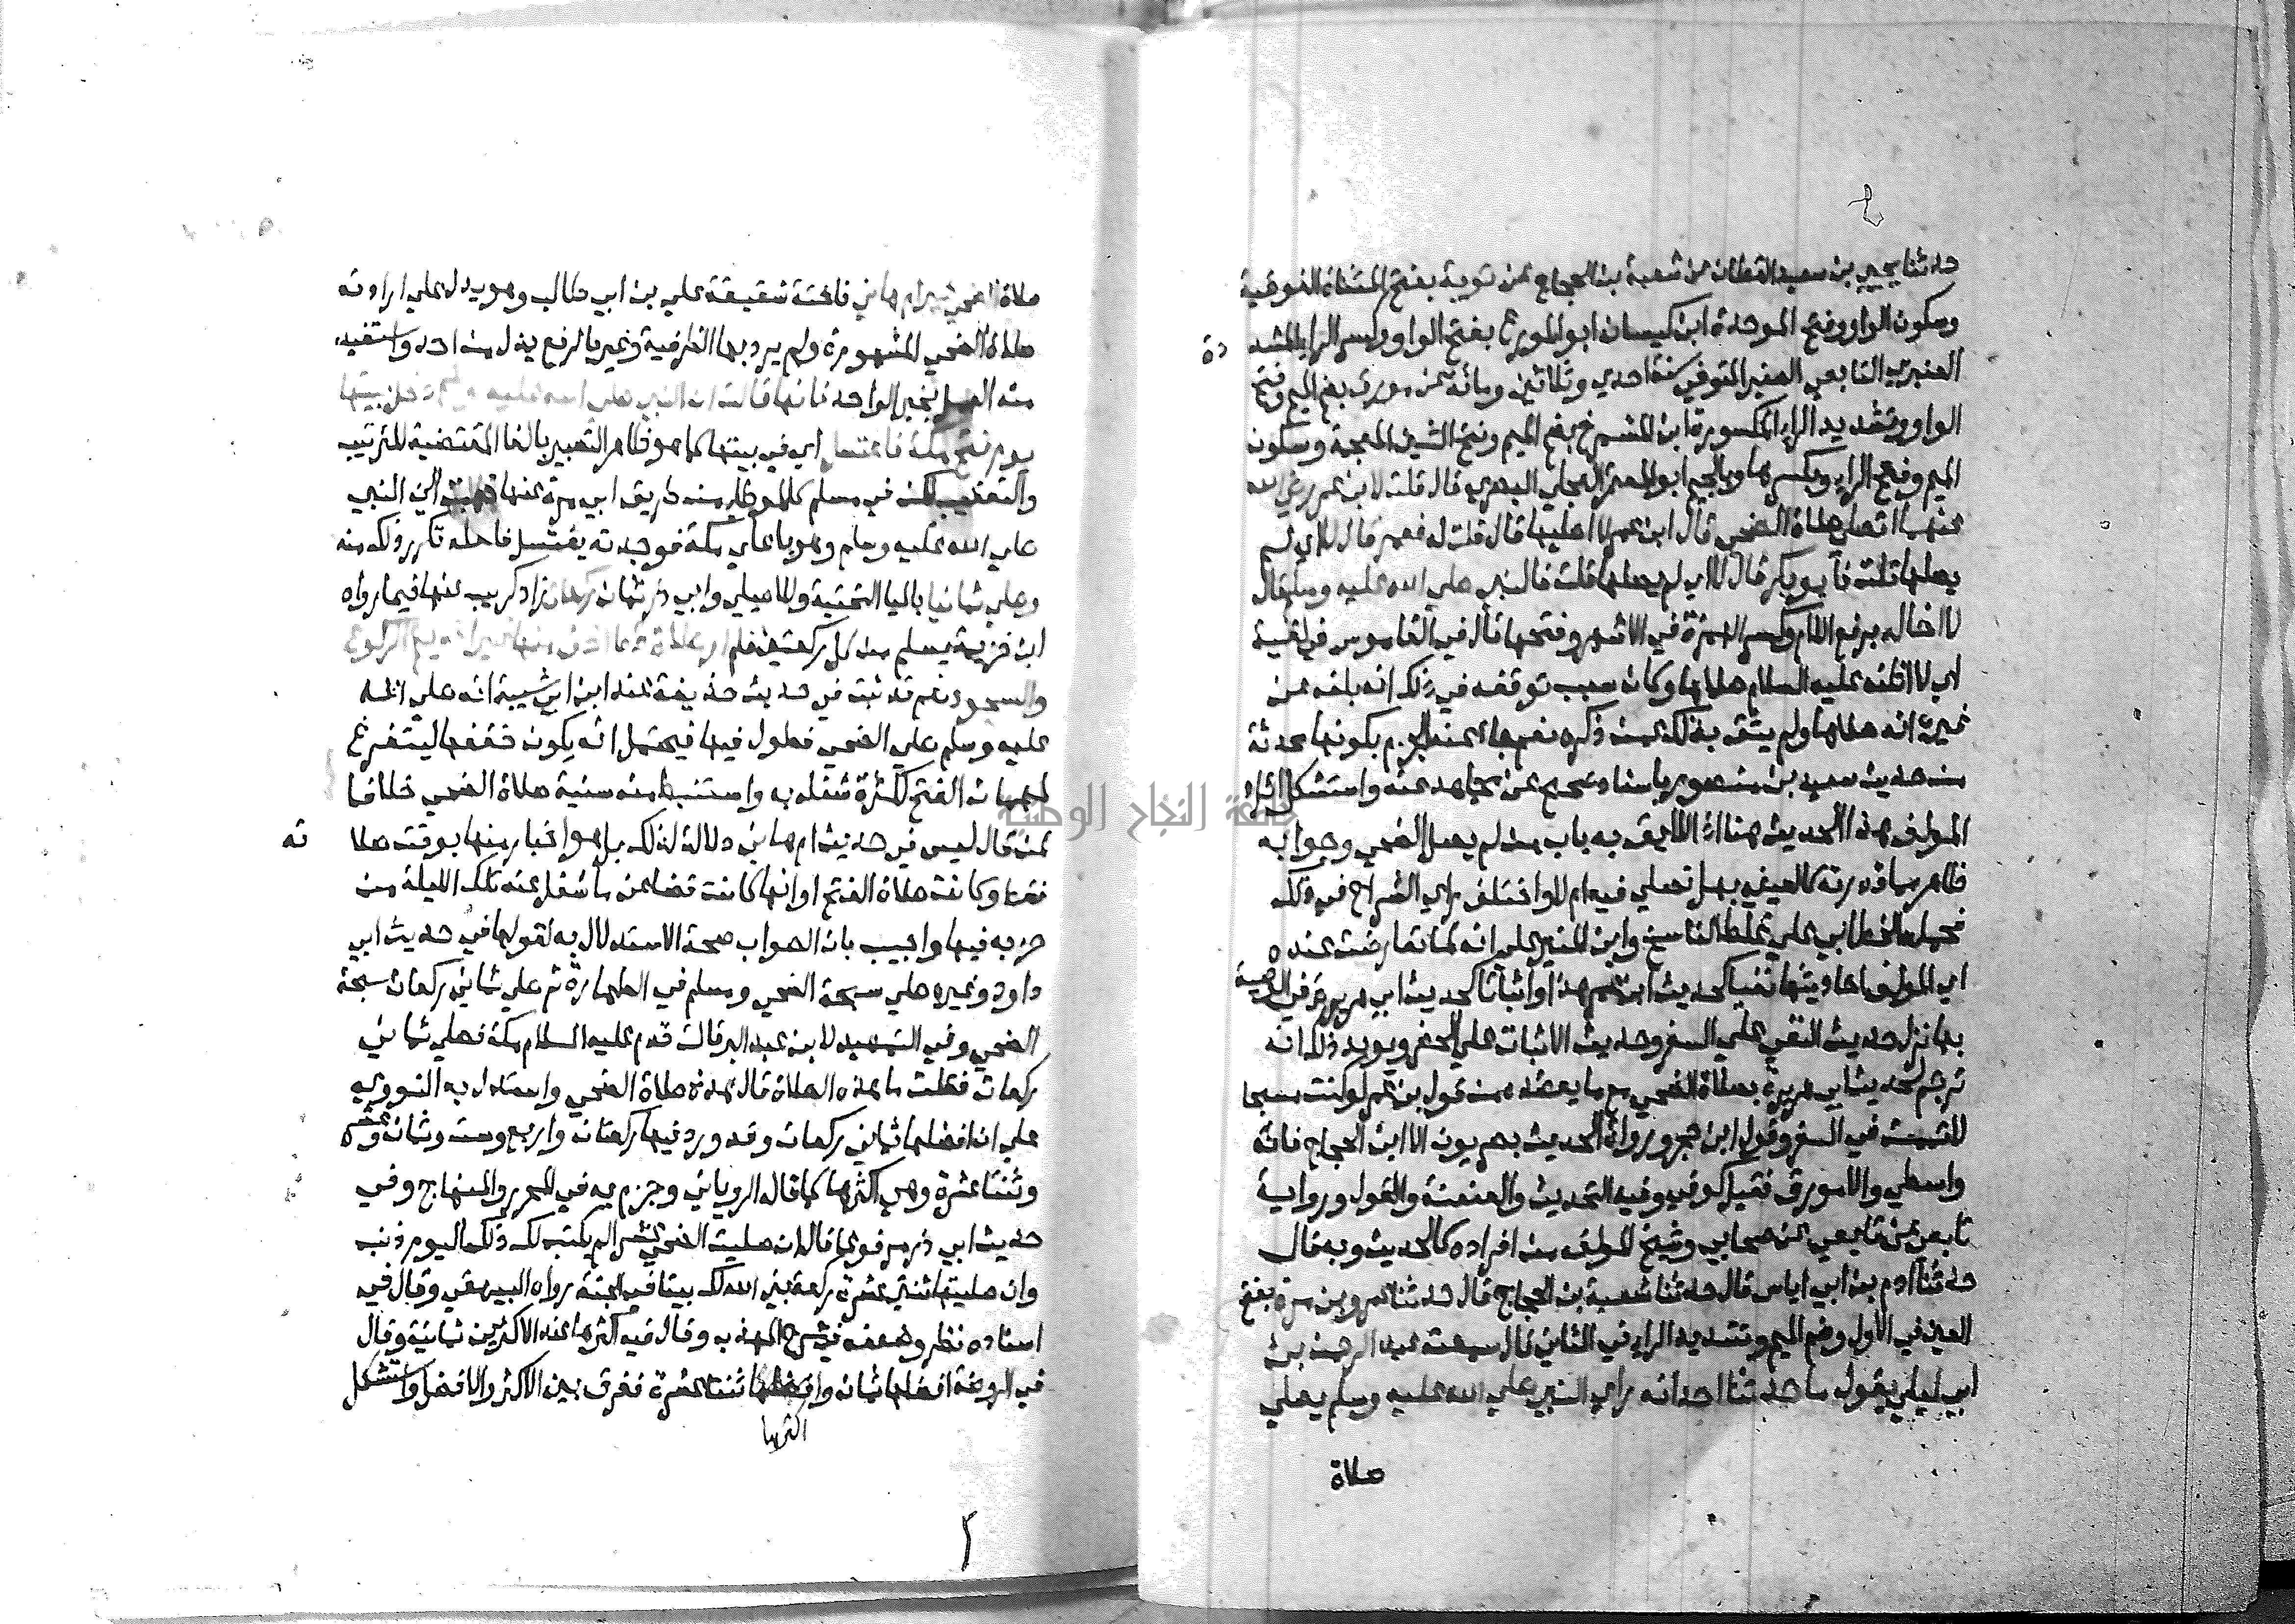 حدثنا يحيي بن سعيد القطان عن شعبة بن الحجاج عن توبة بفتح المثناة الفوقية
وسكون الواو وفتح الموحدة ابن كيسان ابو المورع بفتح الواو وكسر الراء المشد
دة
العنبري التابعي الصغير المتوفي سنة احدي وثلاثين ومائة عن مورق بضم الميم وفتح
الواو وتشديد الراء المكسورة ابن المشمرخ بضم الميم وفتح الشين المعجمة وسكون
الميم وفتح الراء وكسرها وبالجيم ابو المعتمر العجلي البصري قال قلت لابن عمر رضي الله
عنهما اتصلي صلاة الضحي قال ابن عمر لا اصليها قال قلت له فعمر قال لا اي لم
يصلها قلت فابو بكر قال لا اي لم يصلها قلت فالنبي صلي الله عليه وسلم قال
لا اخاله برفع اللام وكسر الهمزة في الاشهر وفتحها قال في القاموس في لغية
اي لا اظنه عليه السلام صلاها وكان سبب توقفه في ذلك انه بلغه عن
غيره انه صلاها ولم يثق بذلك عمن ذكره نعم جاء عنه الجزم بكونها محدثة
من حديث سعيد بن منصور باسناد صحيح عن مجاهد عنه واستشكل ايراد
المولف هذا الحديث هنا اذ اللايق به باب من لم يصل الضحي وجوابه
ظاهر بما قدرته كالعيني بهل تصلي فيه ام لا واختلف راي الشراح في ذلك
فحمله الخطابي علي غلط الناسخ وابن المنير علي انه لما تعارضت عنده
اي المولف احاديثها نفيا كحديث ابن عمر هذا واثباتا كحديث ابي هريرة في الوصية
بها نزل حديث النفي علي السفر وحديث الاثبات علي الحضر ويويد ذلك انه
ترجم لحديث ابي هريرة بصلاة الضحي مع ما يعضده من قول بن عمر لو كنت مسبحا
لاتممت في السفر وقول ابن حجر ورواة الحديث بصريون الا ابن الحجاج فانه
واسطي والا مورق فقيل كوفي وفيه التحديث والعنعنة والقول ورواية
تابعي عن تابعي عن صحابي وشيخ المولف من افراده كالحديث وبه قال
حدثنا ادم بن ابي اياس قال حدثنا شعبة بن الحجاج قال حدثنا عمرو بن مرة بفتح
العين في الاول وضم الميم وتشديد الراء في الثاني قال سمعت عبد الرحمن بن
ابي ليلي يقول ما حدثنا احد انه راي النبي صلي الله عليه وسلم يصلي
صلاة
صلاة الضحي غير ام هاني فاختة شقيقة علي بن ابي طالب وهو يدل علي ارادته
صلاة الضحي المشهورة ولم يرد بها الظرفية وغير بالرفع بدل من احد واستفيد
منه العمل بخبر الواحد فانها قالت ان النبي صلي الله عليه وسلم دخل بيتها
يوم فتح مكة فاغتسل اي في بيتها كما هو ظاهر التعبير بالفا المقتضية للترتيب
والتعقيب لكن في مسلم كالموطا من طريق ابي مرة عنها ذهبت الي النبي
صلي الله عليه وسلم وهو باعلي مكة فوجدته يغتسل فلعله تكرر ذلك منه
وصلي ثمانيا بالياء التحتية وللاصيلي وابي ذر ثمان ركعات زاد كريب عنها فيما رواه
ابن خزيمة يسلم من كل ركعتين فلم ار صلاة قط اخف منها غير انه يتم الركوع
والسجود نعم قد ثبت في حديث حذيفة عند ابن ابي شيبة انه صلي الله
عليه وسلم صلي الضحي فطول فيها فيحتمل انه يكون خففها ليتفرغ
لمهمات الفتح لكثرة شغله به واستنبط منه سنية صلاة الضحي خلافا
لمن قال ليس في حديث ام هاني دلالة لذلك بل هو اخبار منها بوقت صلا
ته
فقط وكانت صلاة الفتح او انها كانت قضاء عن ما شغل عنه تلك الليلة من
حزبه فيها واجيب بان الصواب صحة الاستدلال به لقولها في حديث ابي
داود وغيره صلي سبحة الضحي ومسلم في الطهارة ثم صلي ثماني ركعات سبحة
الضحي وفي التمهيد لابن عبد البر قالت قدم عليه السلام مكة فصلي ثماني
ركعات فقلت ما هذه الصلاة قال هذه صلاة الضحي واستدل به النووي
علي ان افضلها ثماني ركعات وقد ورد فيها ركعتان واربع وست وثمان وعشرة
وثنتا عشرة وهي اكثرها كما قاله الروياني وجزم به في المحرر والمنهاج وفي
حديث ابي ذر مرفوعا قال ان صليت الضحي عشرا لم يكتب لك ذلك اليوم ذنب
وان صليتها ثنتي عشرة ركعة بني الله لك بيتا في الجنة رواه البيهقي وقال في
اسناده نظر وضعفه في شرح المهذب وقال فيه اكثرها عند الاكثرين ثمانية وقال
في الروضة افضلها ثمان واكثرها ثنتا عشرة ففرق بين الاكثر والافضل واستشكل
اكثرها
جامعة النجاح الوطنية